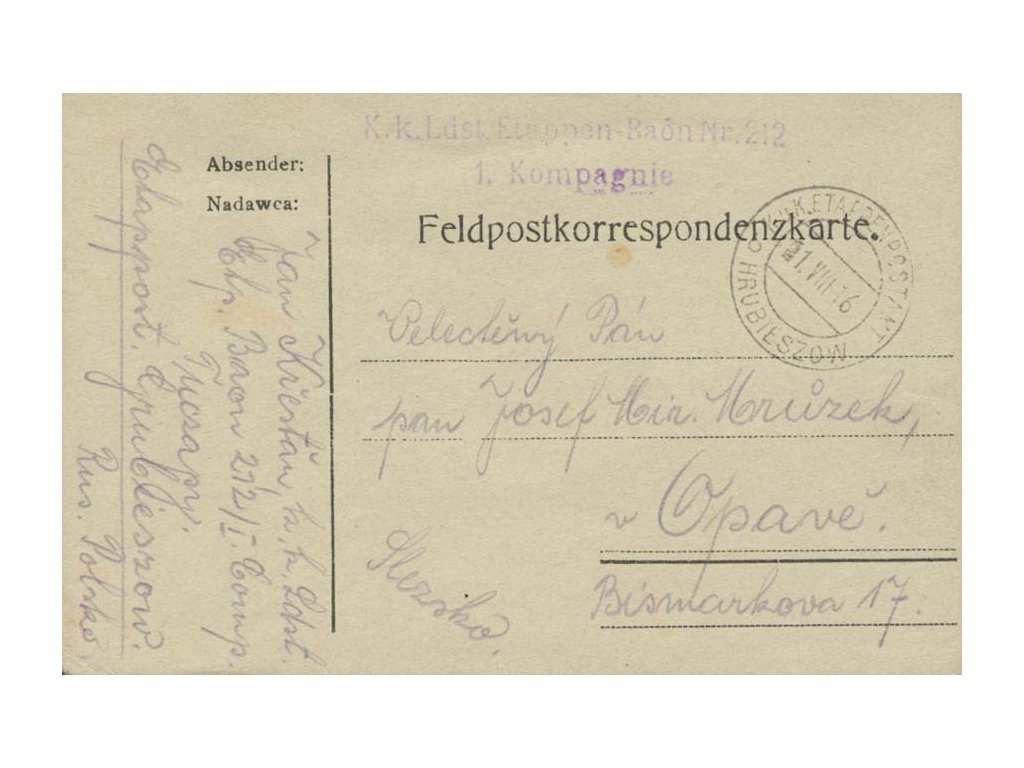 K.k. Ldst. Etappen-Baōn Nr. 212
1. Kompagnie
Absender:
Nadawca:
Feldpostkorrespondenzkarte.
K.U.K. ETAPPENPOSTAMT
HRUBIESZOW
1. VIII 16
Jan Křesťan, k. k. Ldst.
Etp. Baon 212/I. Comp.
Tuczapy.
Etappost. Hrubieszow.
Rus. Polsko.
Velectěný Pán
pan Josef Mir. Mrůzek,
v Opavě.
Bismarkova 17.
Slezsko.